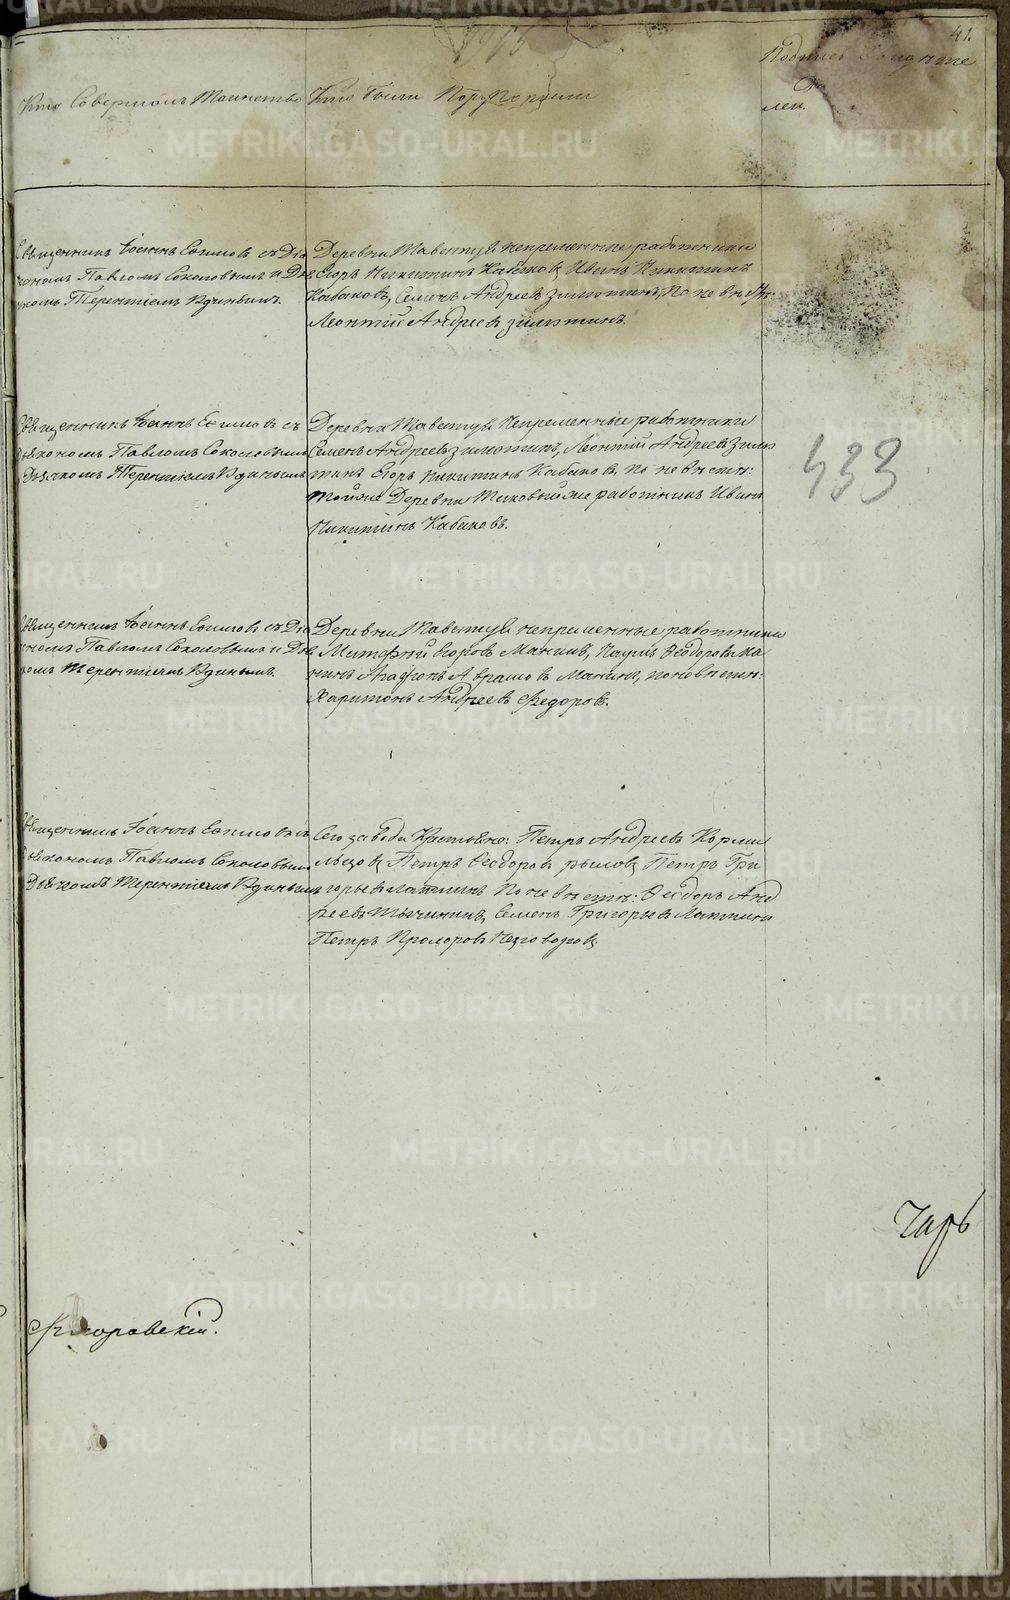 41.
Кто Совершалъ Таинство
Кто были Поручители
Подпись Свидѣте
лей.
Священникъ Іоаннъ Есиповъ съ Діа
кономъ Павломъ Соколовымъ и Дья
комъ Терентіемъ Удинымъ.
Деревни Таватуй непременные работники
Егоръ Никитинъ Кабаковъ, Иванъ Никитинъ
Кабаковъ, Семенъ Андреевъ
Леонтій Андреевъ
Священникъ Іоаннъ Есиповъ съ
Діакономъ Павломъ Соколовымъ
Дьячкомъ Терентіемъ Удинымъ
Деревни Таватуй Непременные работники
Семенъ Андреевъ Леонтій Андреевъ
Егоръ Никитинъ Кабаковъ по невѣстѣ:
тойже Деревни Таковый же работникъ Иванъ
Никитинъ Кабаковъ.
433
Священникъ Іоаннъ Есиповъ съ Діа
кономъ Павломъ Соколовымъ и Дья
комъ Терентіемъ Удинымъ.
Деревни Таватуй непременные работники
Егоровъ Манинъ, Феодоровъ Ма
нинъ Агафонъ Аврамовъ Манинъ, по невѣстѣ:
Харитонъ Андреевъ Федоровъ.
Священникъ Іоаннъ Есиповъ съ
Діакономъ Павломъ Соколовымъ
Дьячкомъ Терентіемъ Удинымъ
Сего завода Крестьяне: Петръ Андреевъ Корми
льцовъ, Петръ Феодоровъ Рыловъ, Петръ Гри
горьевъ Латышъ По невѣстѣ: Феодоръ Анд
реевъ Семенъ Григорьевъ
Петръ Прохоровъ
Чарь
Флоровскій.
METRIKI.GASO-URAL.RU